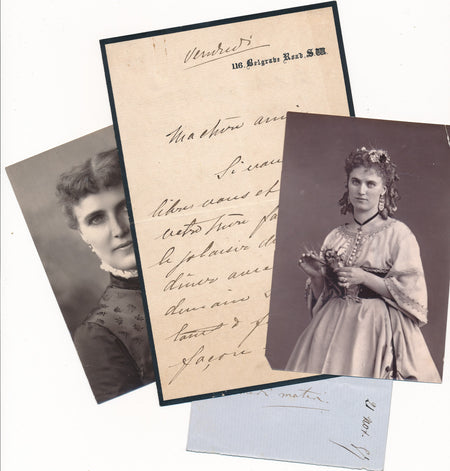 Vendredi
116. Belgrave Road, S.W.
Ma chère amie
Si vous
libres vous et
votre frère fa
le plaisir de
dîner avec
demain
tout à f
façon
matin.
21 nov.